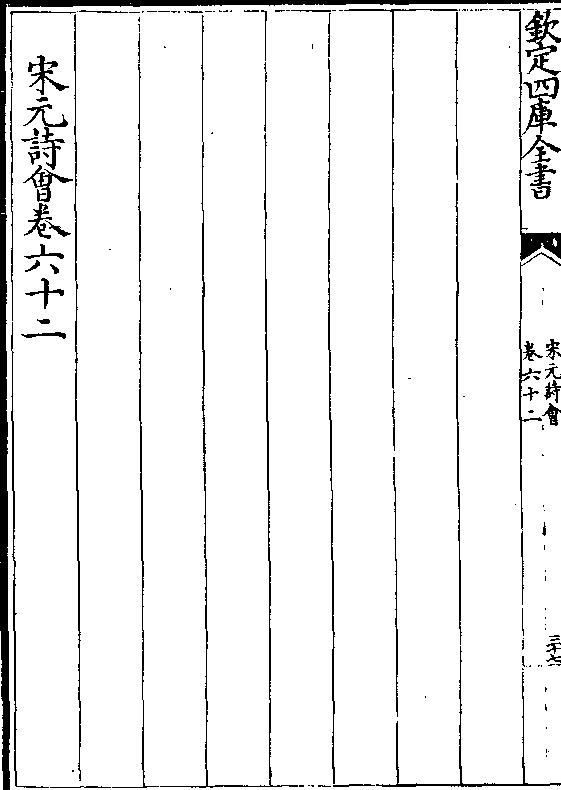 欽定四庫全書
宋元詩會
卷六十二
三十七
宋元詩會卷六十二